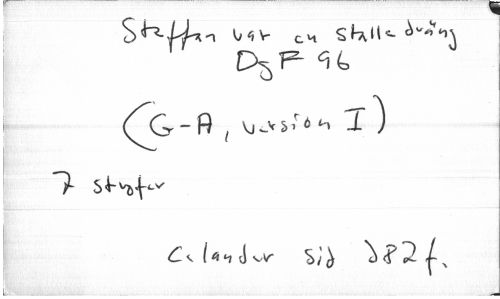 Staffan var en stalledräng
DgF 96
(G-A, version I)
7 strofer
Celander sid 282 f.